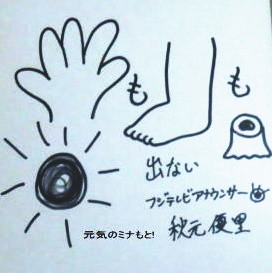 も も
出ない
フジテレビアナウンサー
秋元優里
元気のミナもと!